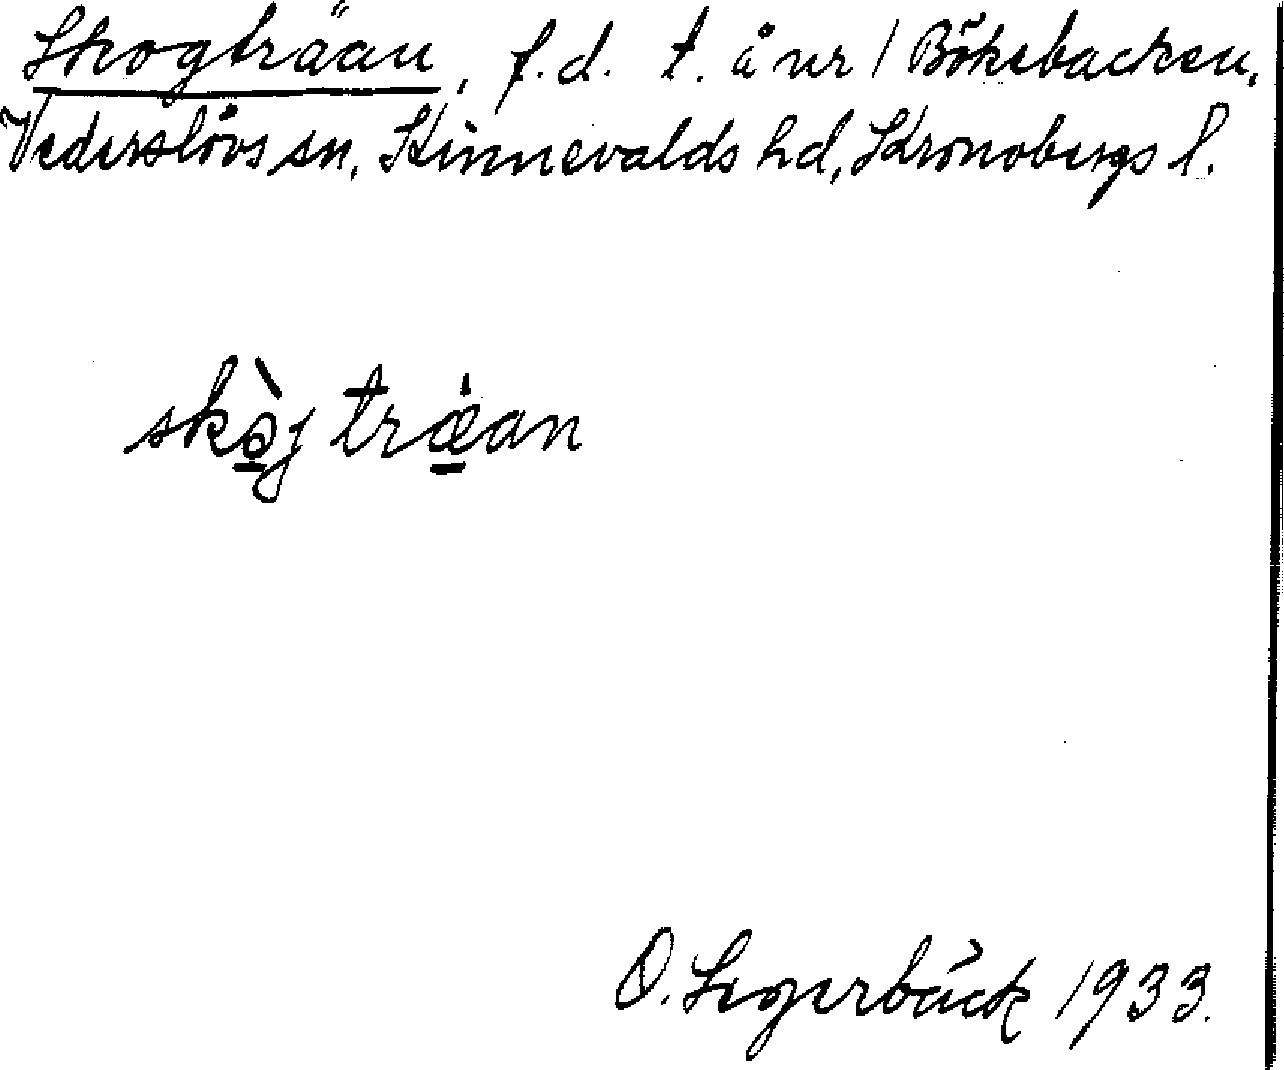 Skogträan, f.d. t. å nr 1 Bökebacken,
Vederslövs sn, Kinnevalds hd, Kronobergs l.
skò̠j træ̠an
O. Segerbäck 1933.